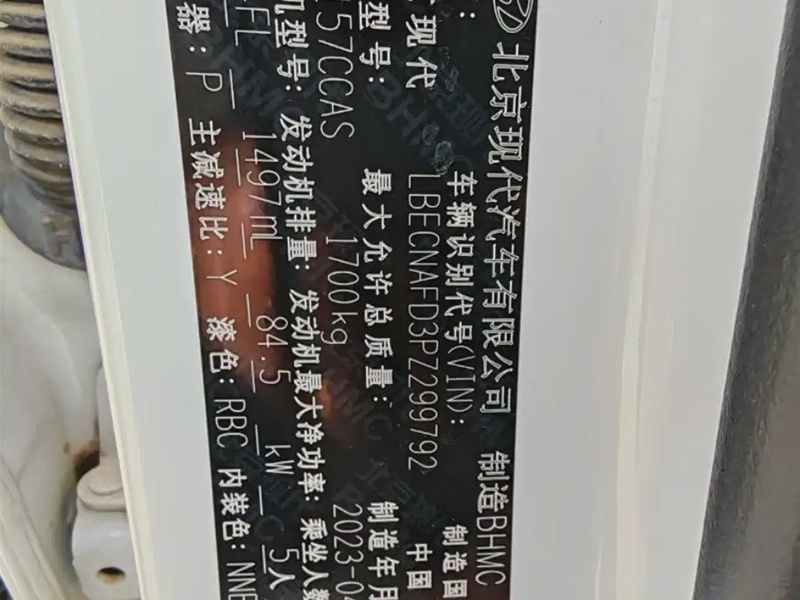 北京现代汽车有限公司 制造BHMC
: 车辆识别代号(VIN): 制造国
现代 LBECNAFD3PZ299792 中国
型号: 最大允许总质量: 制造年月
57CCAS 1700kg 2023-04
机型号: 发动机排量: 发动机最大净功率: 乘坐人数
FL 1497mL 84.5 kW 5人
器: P 主减速比: Y 漆色: RBC 内装色: NNB